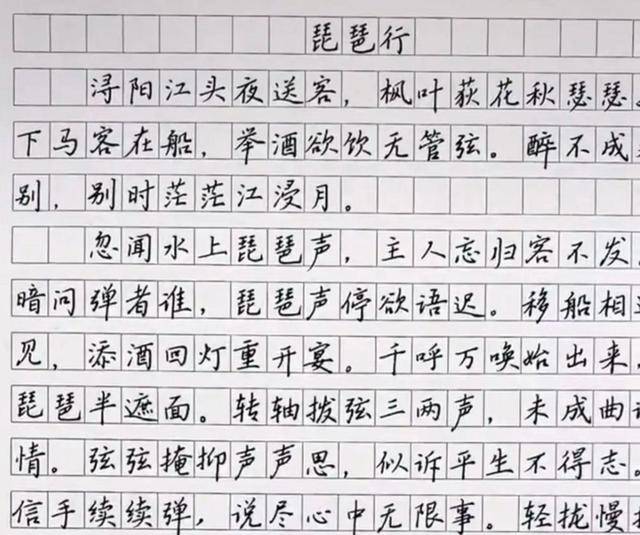 琵琶行
浔阳江头夜送客，枫叶荻花秋瑟瑟。
下马客在船，举酒欲饮无管弦。醉不成
别，别时茫茫江浸月。
忽闻水上琵琶声，主人忘归客不发，
暗问弹者谁，琵琶声停欲语迟。移船相
见，添酒回灯重开宴。千呼万唤始出来，
琵琶半遮面。转轴拨弦三两声，未成曲
情。弦弦掩抑声声思，似诉平生不得志。
信手续续弹，说尽心中无限事。轻拢慢